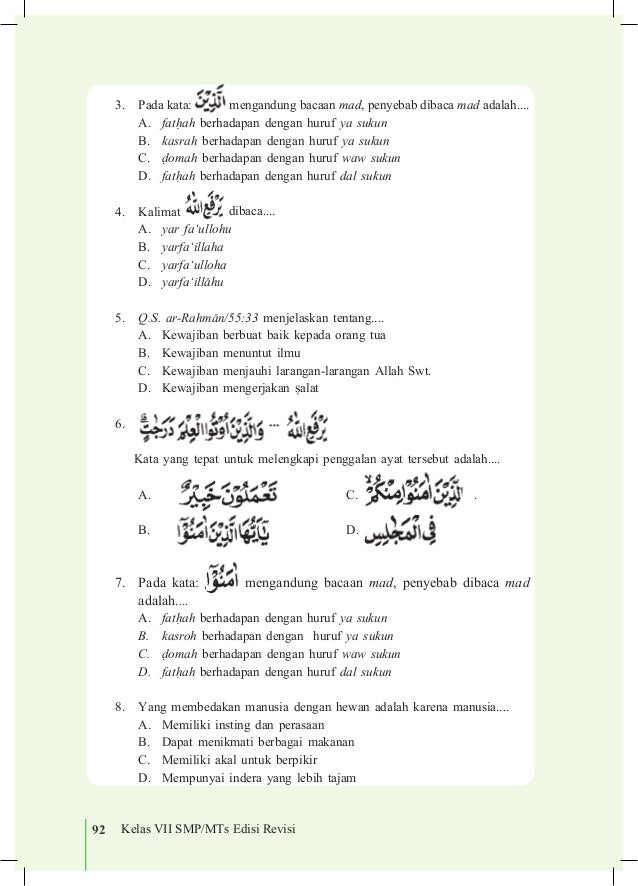 3. Pada kata: الَّذِيْنَ mengandung bacaan mad, penyebab dibaca mad adalah....
A. fatḥah berhadapan dengan huruf ya sukun
B. kasrah berhadapan dengan huruf ya sukun
C. ḍomah berhadapan dengan huruf waw sukun
D. fatḥah berhadapan dengan huruf dal sukun
4. Kalimat يَرْفَعِ اللّٰهُ dibaca....
A. yar fa‘ullohu
B. yarfa‘illaha
C. yarfa‘ulloha
D. yarfa‘illāhu
5. Q.S. ar-Rahmān/55:33 menjelaskan tentang....
A. Kewajiban berbuat baik kepada orang tua
B. Kewajiban menuntut ilmu
C. Kewajiban menjauhi larangan-larangan Allah Swt.
D. Kewajiban mengerjakan ṣalat
6. يَرْفَعِ اللّٰهُ ... وَالَّذِيْنَ اُوْتُوا الْعِلْمَ دَرَجٰتٍۗ
Kata yang tepat untuk melengkapi penggalan ayat tersebut adalah....
A. تَعْمَلُوْنَ خَبِيْرٌ C. الَّذِيْنَ اٰمَنُوْا مِنْكُمْۙ .
B. يٰٓاَيُّهَا الَّذِيْنَ اٰمَنُوْٓا D. فِى الْمَجٰلِسِ
7. Pada kata: اٰمَنُوْٓا mengandung bacaan mad, penyebab dibaca mad
adalah....
A. fatḥah berhadapan dengan huruf ya sukun
B. kasroh berhadapan dengan huruf ya sukun
C. ḍomah berhadapan dengan huruf waw sukun
D. fatḥah berhadapan dengan huruf dal sukun
8. Yang membedakan manusia dengan hewan adalah karena manusia....
A. Memiliki insting dan perasaan
B. Dapat menikmati berbagai makanan
C. Memiliki akal untuk berpikir
D. Mempunyai indera yang lebih tajam
92 Kelas VII SMP/MTs Edisi Revisi